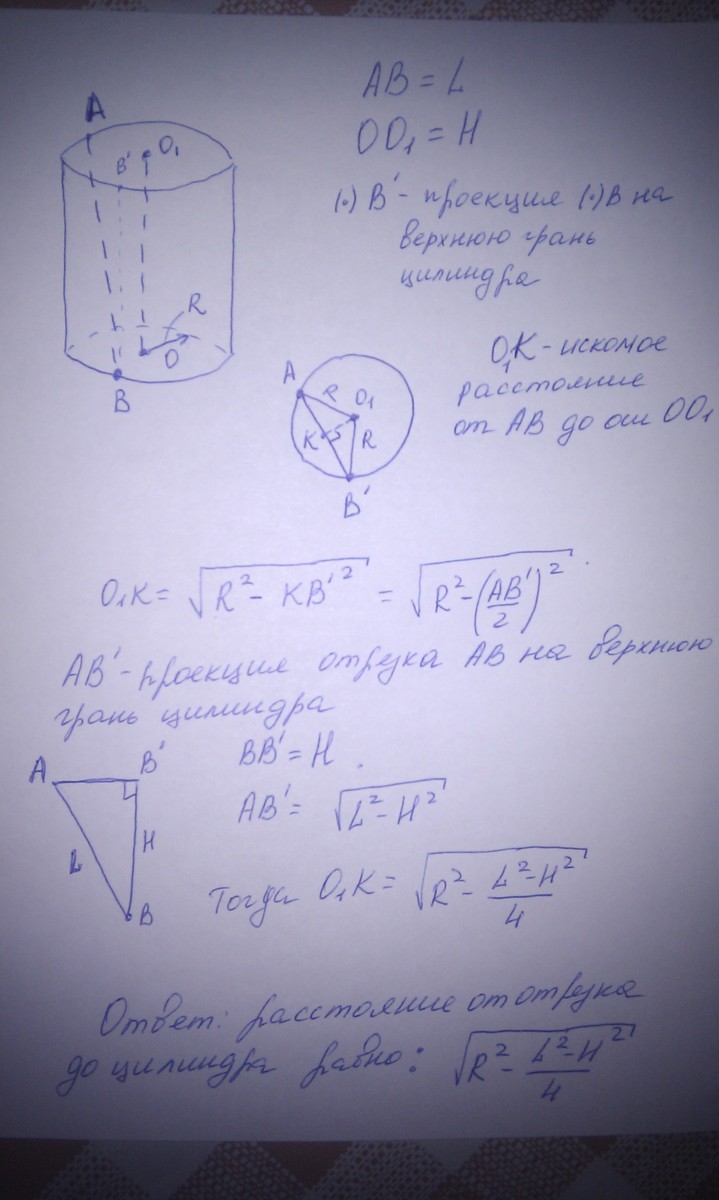 AB = L
OO₁ = H
(·) B' - проекция (·) B на
верхнюю грань
цилиндра
A
B'
O₁
R
O
B
O₁K - искомое
расстояние
от AB до оси OO₁
A
R
O₁
K
R
B'
O₁K = √(R² - KB'²) = √(R² - (AB'/2)²)
AB' - проекция отрезка AB на верхнюю
грань цилиндра
A
B'
L
H
B
BB' = H.
AB' = √(L² - H²)
Тогда O₁K = √(R² - (L² - H²)/4)
Ответ: расстояние от отрезка
до цилиндра равно: √(R² - (L² - H²)/4)